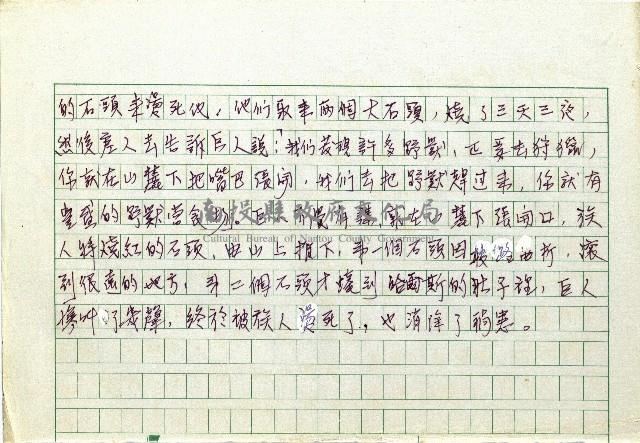 的石頭來燙死他，他們取來兩個大石頭，燒了三天三夜，
然後差人去告訴巨人說：「我們發現許多野獸，正要去狩獵，
你就在山麓下把嘴巴張開，我們去把野獸趕過來，你就有
豐盛的野獸當食物。」巨人在山麓下張開口，族
人將燒紅的石頭，由山上推下，第一個石頭因被路面折，滾
到很遠的地方，第二個石頭才燒到哈雷斯的肚子裡，巨人
慘叫了幾聲，終於被族人燙死了，也消除了禍患。
南投縣政府文化局
Cultural Bureau of Nantou County Government